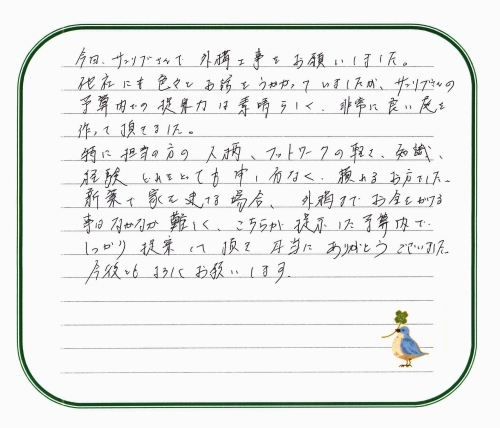 今回、サンリブさんで外構工事をお願いしました。
他社にも色々とお話をうかがっていましたが、サンリブさんの
予算内での提案力は素晴らしく、非常に良い庭を
作って頂てました。
特に担当の方の人柄、フットワークの軽さ、知識、
経験どれをとっても申し分なく、頼れるお方でした。
新築で家を建てる場合、外構までお金をかける
事はなかなか難しく、こちらが提示した予算内で
しっかり提案して頂き本当にありがとうございました。
今後ともよろしくお願いします。